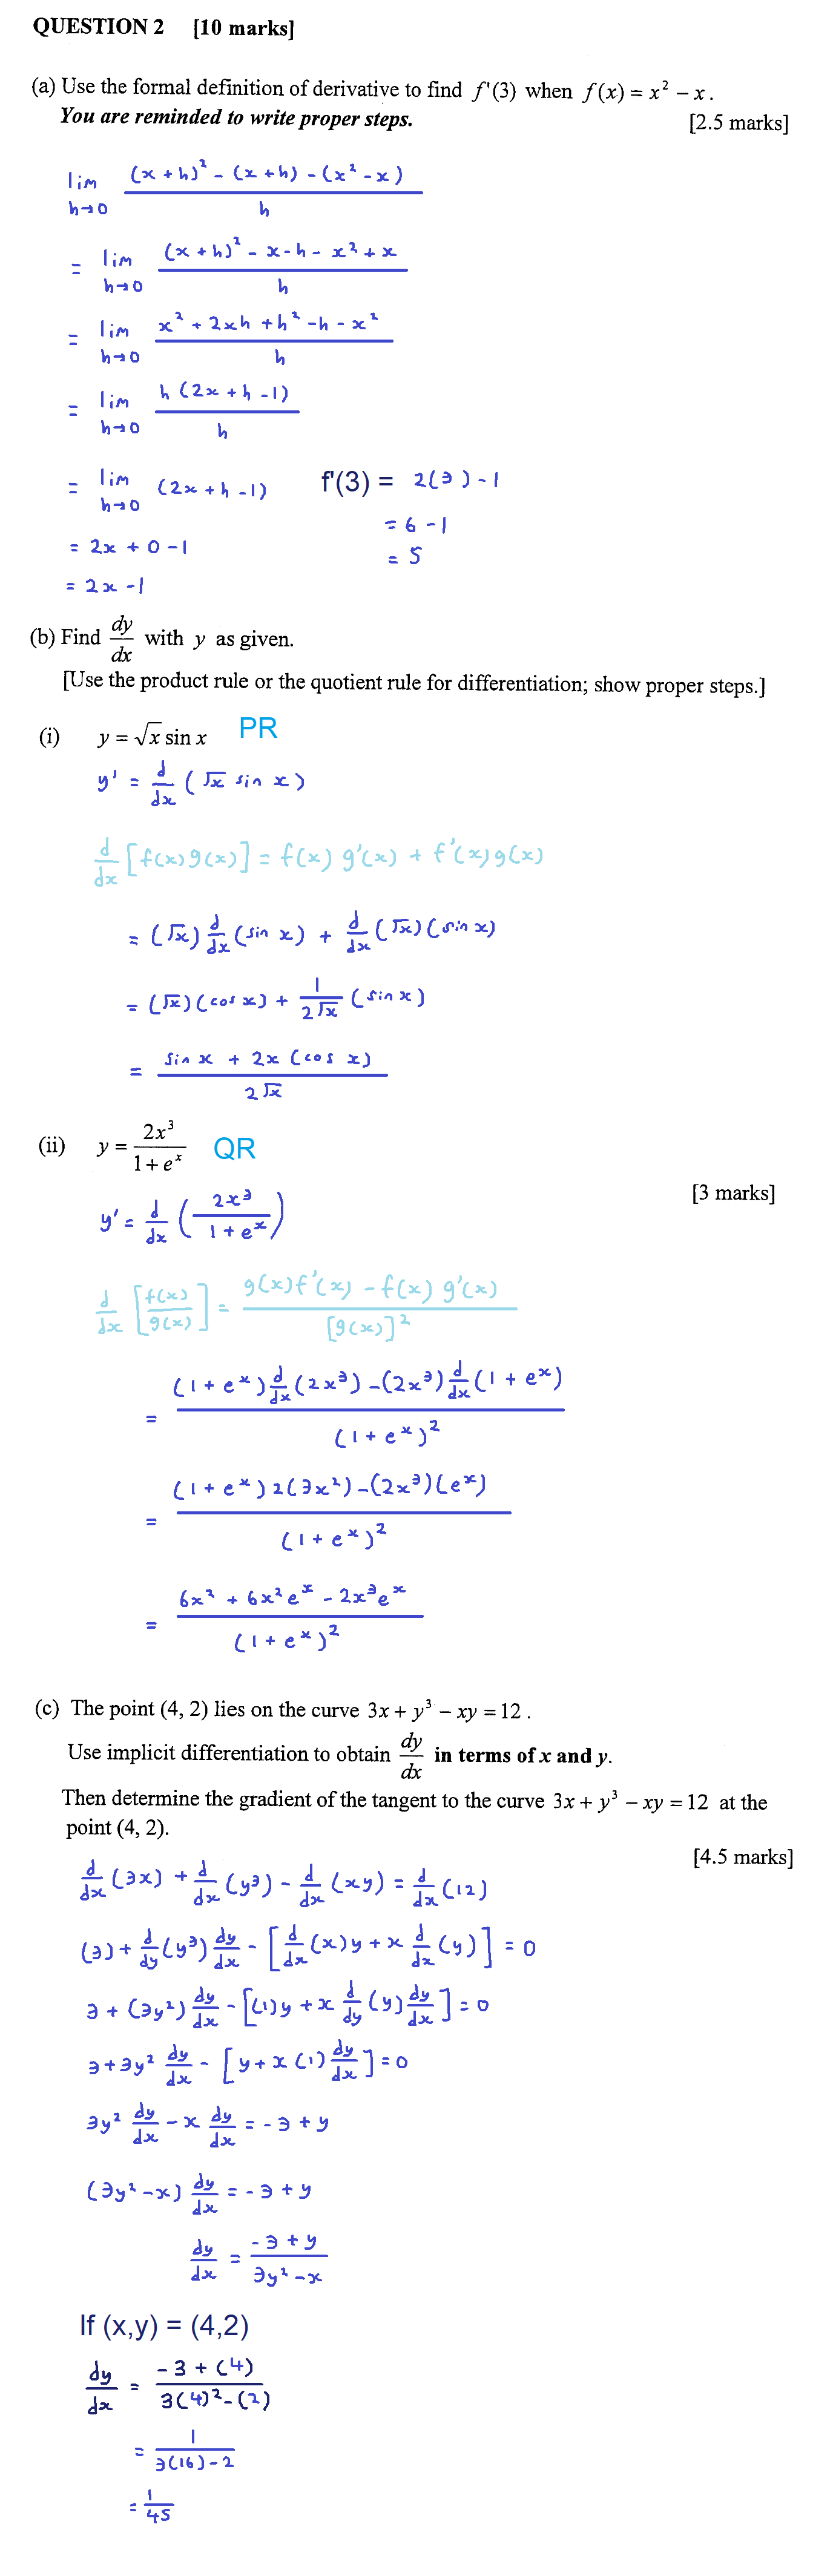 QUESTION 2 [10 marks]
(a) Use the formal definition of derivative to find f'(3) when f(x) = x² − x.
You are reminded to write proper steps.
[2.5 marks]
lim h→0 ((x + h)² − (x + h) − (x² − x)) / h
= lim h→0 ((x + h)² − x − h − x² + x) / h
= lim h→0 (x² + 2xh + h² − h − x²) / h
= lim h→0 h(2x + h − 1) / h
= lim h→0 (2x + h − 1)
= 2x + 0 − 1
= 2x − 1
f'(3) = 2(3) − 1
= 6 − 1
= 5
(b) Find dy/dx with y as given.
[Use the product rule or the quotient rule for differentiation; show proper steps.]
(i) y = √x sin x PR
y' = d/dx (√x sin x)
d/dx [f(x)g(x)] = f(x) g'(x) + f'(x)g(x)
= (√x) d/dx (sin x) + d/dx (√x)(sin x)
= (√x)(cos x) + 1/(2√x) (sin x)
= (sin x + 2x (cos x)) / (2√x)
(ii) y = 2x³ / (1 + eˣ) QR
[3 marks]
y' = d/dx (2x³ / (1 + eˣ))
d/dx [f(x)/g(x)] = (g(x)f'(x) − f(x) g'(x)) / [g(x)]²
= ((1 + eˣ) d/dx (2x³) − (2x³) d/dx (1 + eˣ)) / (1 + eˣ)²
= ((1 + eˣ) 2(3x²) − (2x³)(eˣ)) / (1 + eˣ)²
= (6x² + 6x²eˣ − 2x³eˣ) / (1 + eˣ)²
(c) The point (4, 2) lies on the curve 3x + y³ − xy = 12.
Use implicit differentiation to obtain dy/dx in terms of x and y.
Then determine the gradient of the tangent to the curve 3x + y³ − xy = 12 at the
point (4, 2).
[4.5 marks]
d/dx (3x) + d/dx (y³) − d/dx (xy) = d/dx (12)
(3) + d/dy (y³) dy/dx − [d/dx (x)y + x d/dx (y)] = 0
3 + (3y²) dy/dx − [(1)y + x d/dy (y) dy/dx] = 0
3 + 3y² dy/dx − [y + x (1) dy/dx] = 0
3y² dy/dx − x dy/dx = −3 + y
(3y² − x) dy/dx = −3 + y
dy/dx = (−3 + y) / (3y² − x)
If (x,y) = (4,2)
dy/dx = (−3 + (4)) / (3(4)² − (2))
= 1 / (3(16) − 2)
= 1/45